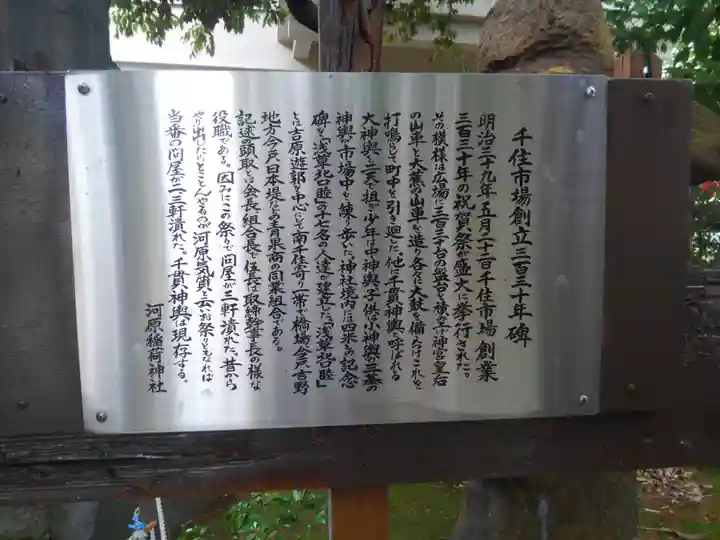 千住市場創立三百三十年碑
明治三十九年五月二十二日千住市場創業
三百三十年の祝賀祭が盛大に挙行された。
その模様は広場に三百三十台の盤台を積み上げ神宮皇后
の山車と大蕪の山車を造り各々に大鼓を備えつけこれを
打鳴らして町中を引き廻した。他に千貫神輿と呼ばれる
大神輿を二天で担ぎ少年は中神輿、子供は小神輿の三基の
神輿が市場中を練り歩いた。神社境内には四米もの記念
碑を「浅草北口睦」の千七名の人達が建立した「浅草北口睦」
とは吉原遊郭を中心にして南千住寄り一帯で橋場今戸、吉野
地方今戸日本堤など青果商の同業組合である。
記述の頭取とは会長、組合長で伍長は取締幹事長の様な
役職である。因みにこの祭りで問屋が三軒潰れた。昔から
やり出したらとことんやるのが河原気質と云いお祭りともなれば
当番の問屋が二三軒潰れた。千貫神輿は現存する。
河原稲荷神社